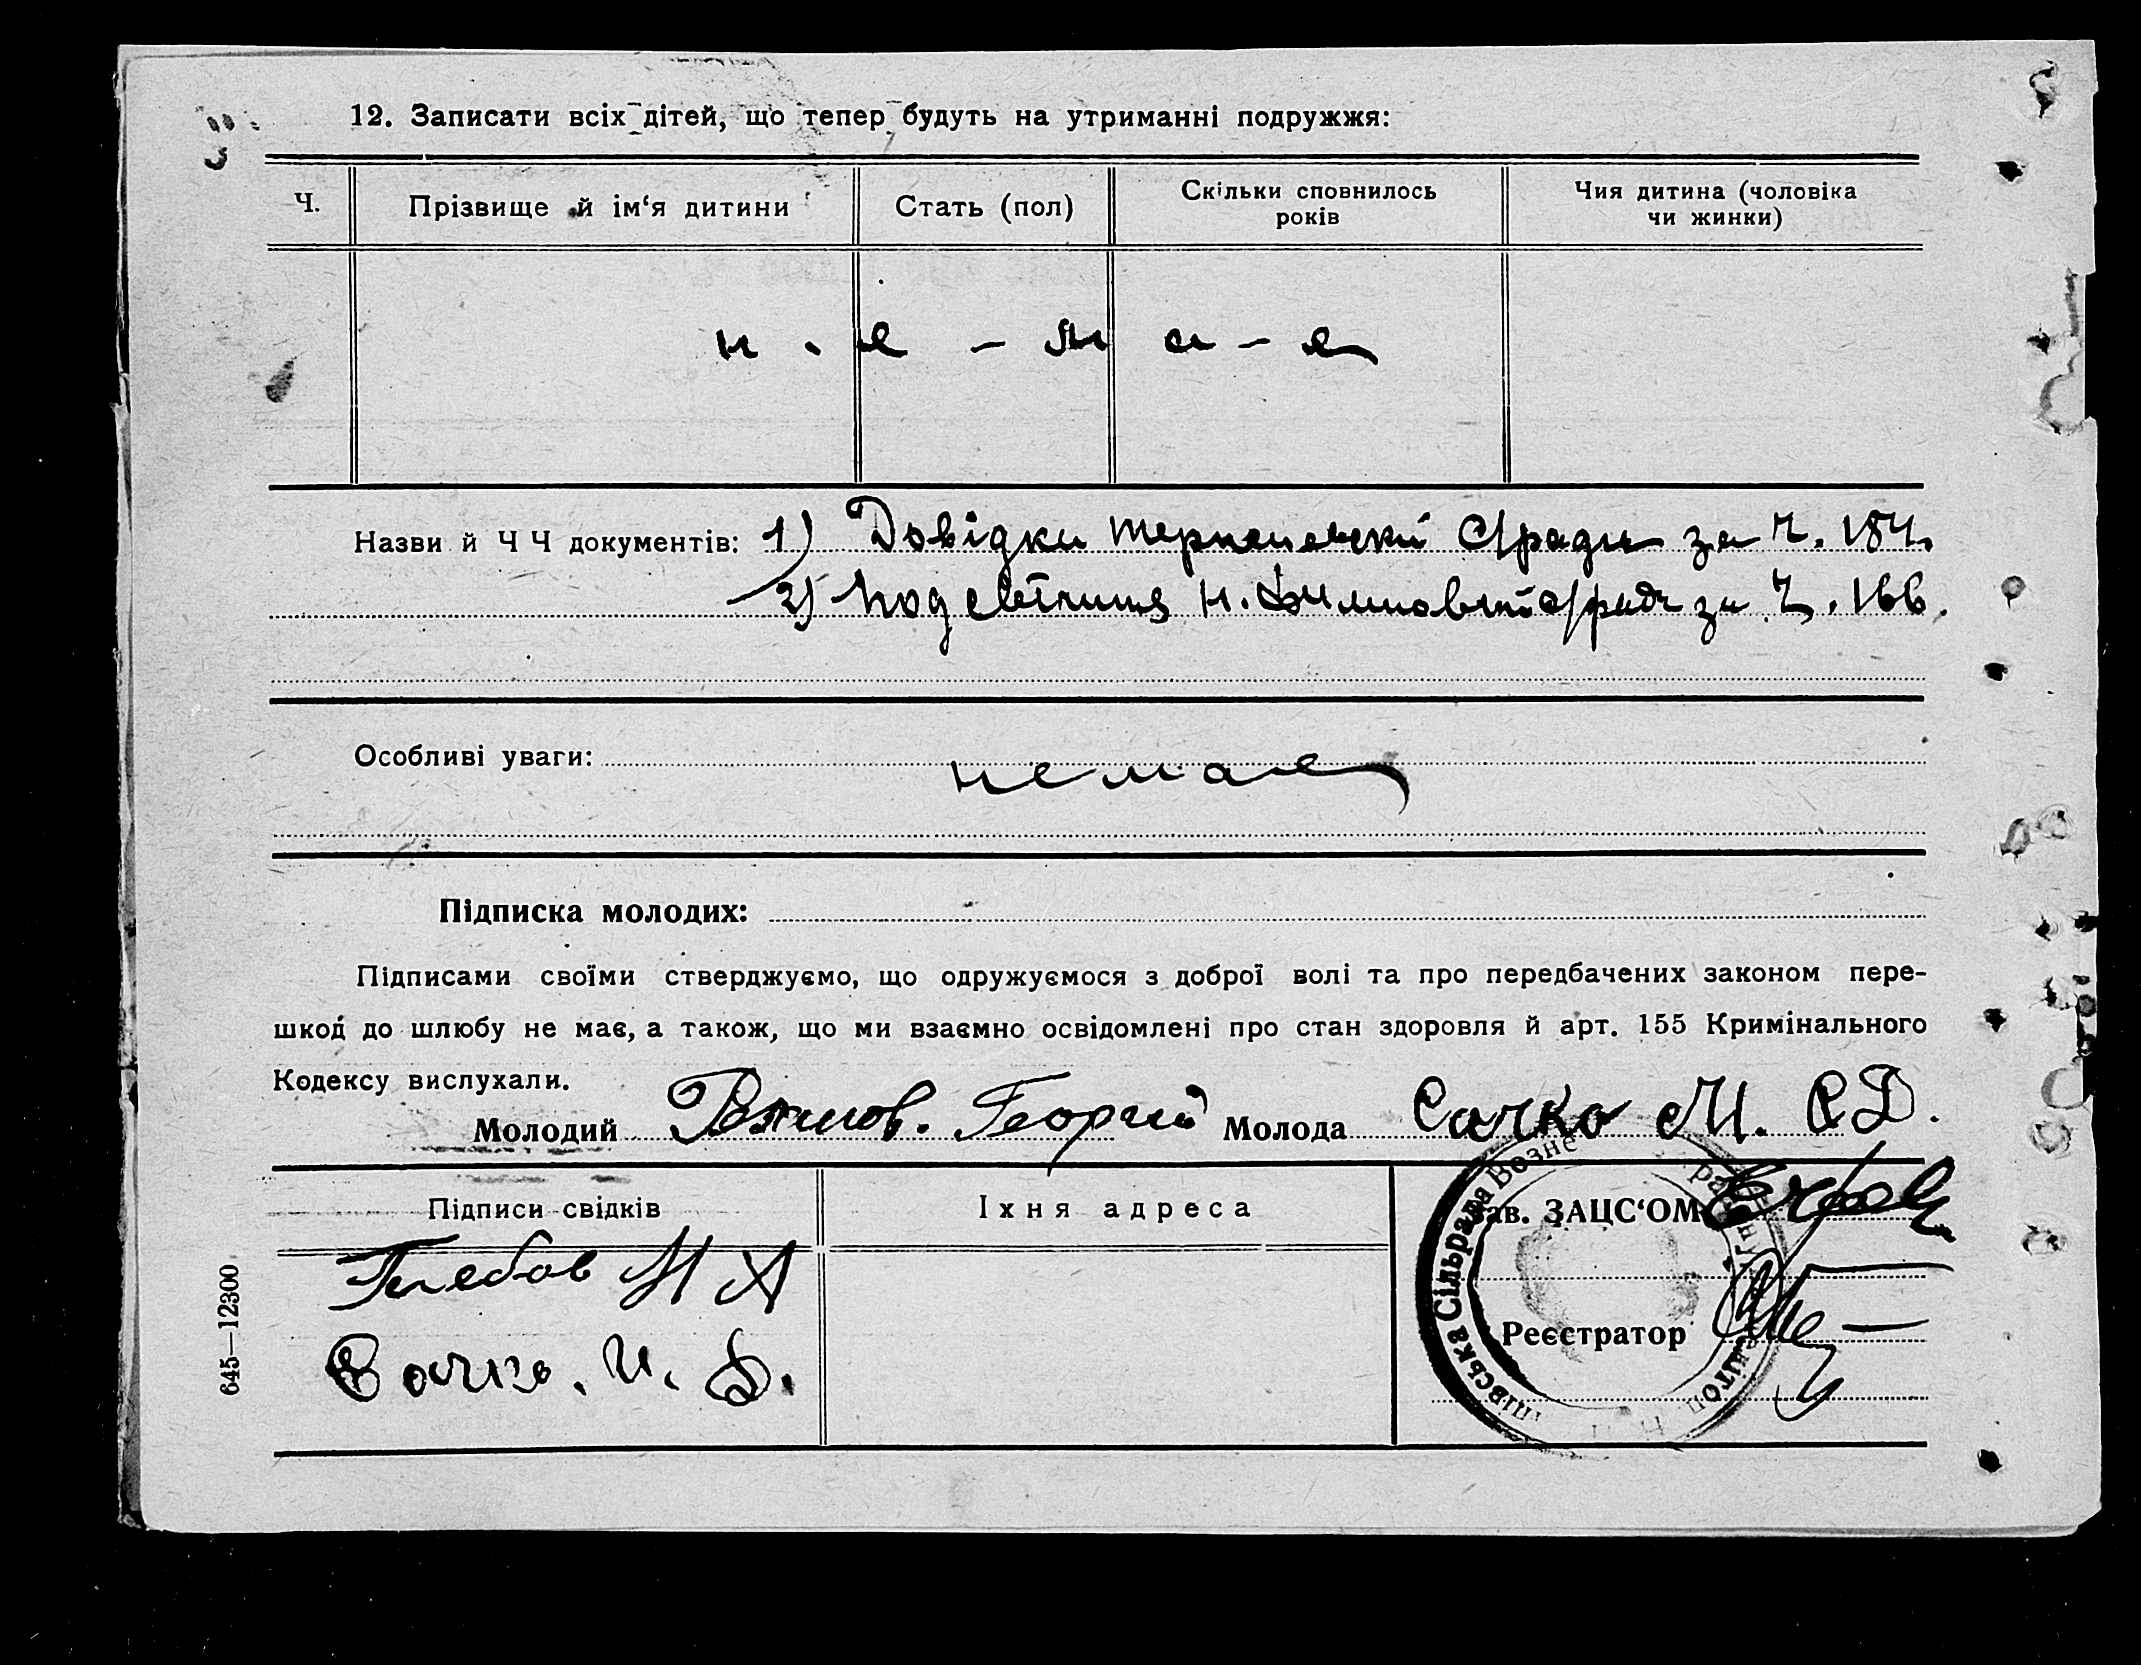 12. Записати всіх дітей, що тепер будуть на утриманні подружжя:
Ч. Прізвище й ім‘я дитини Стать (пол) Скільки сповнилось років Чия дитина (чоловіка чи жинки)
н . е - м а - е
Назви й Ч Ч документів: 1) Довідки С/ради за Ч. 184.
2) за Ч. 166.
Особливі уваги: немає
Підписка молодих:
Підписами своїми стверджуємо, що одружуємося з доброї волі та про передбачених законом пере-
шкод до шлюбу не має, а також, що ми взаємно освідомлені про стан здоровля й арт. 155 Кримінального
Кодексу вислухали.
Молодий Георгій Молода Сачко М. Д.
Підписи свідків Їхня адреса Зав. ЗАЦС‘ОМ
Глебов Н А
Реєстратор
Сачко. И. Д.
645—12300
Сільрада Возне